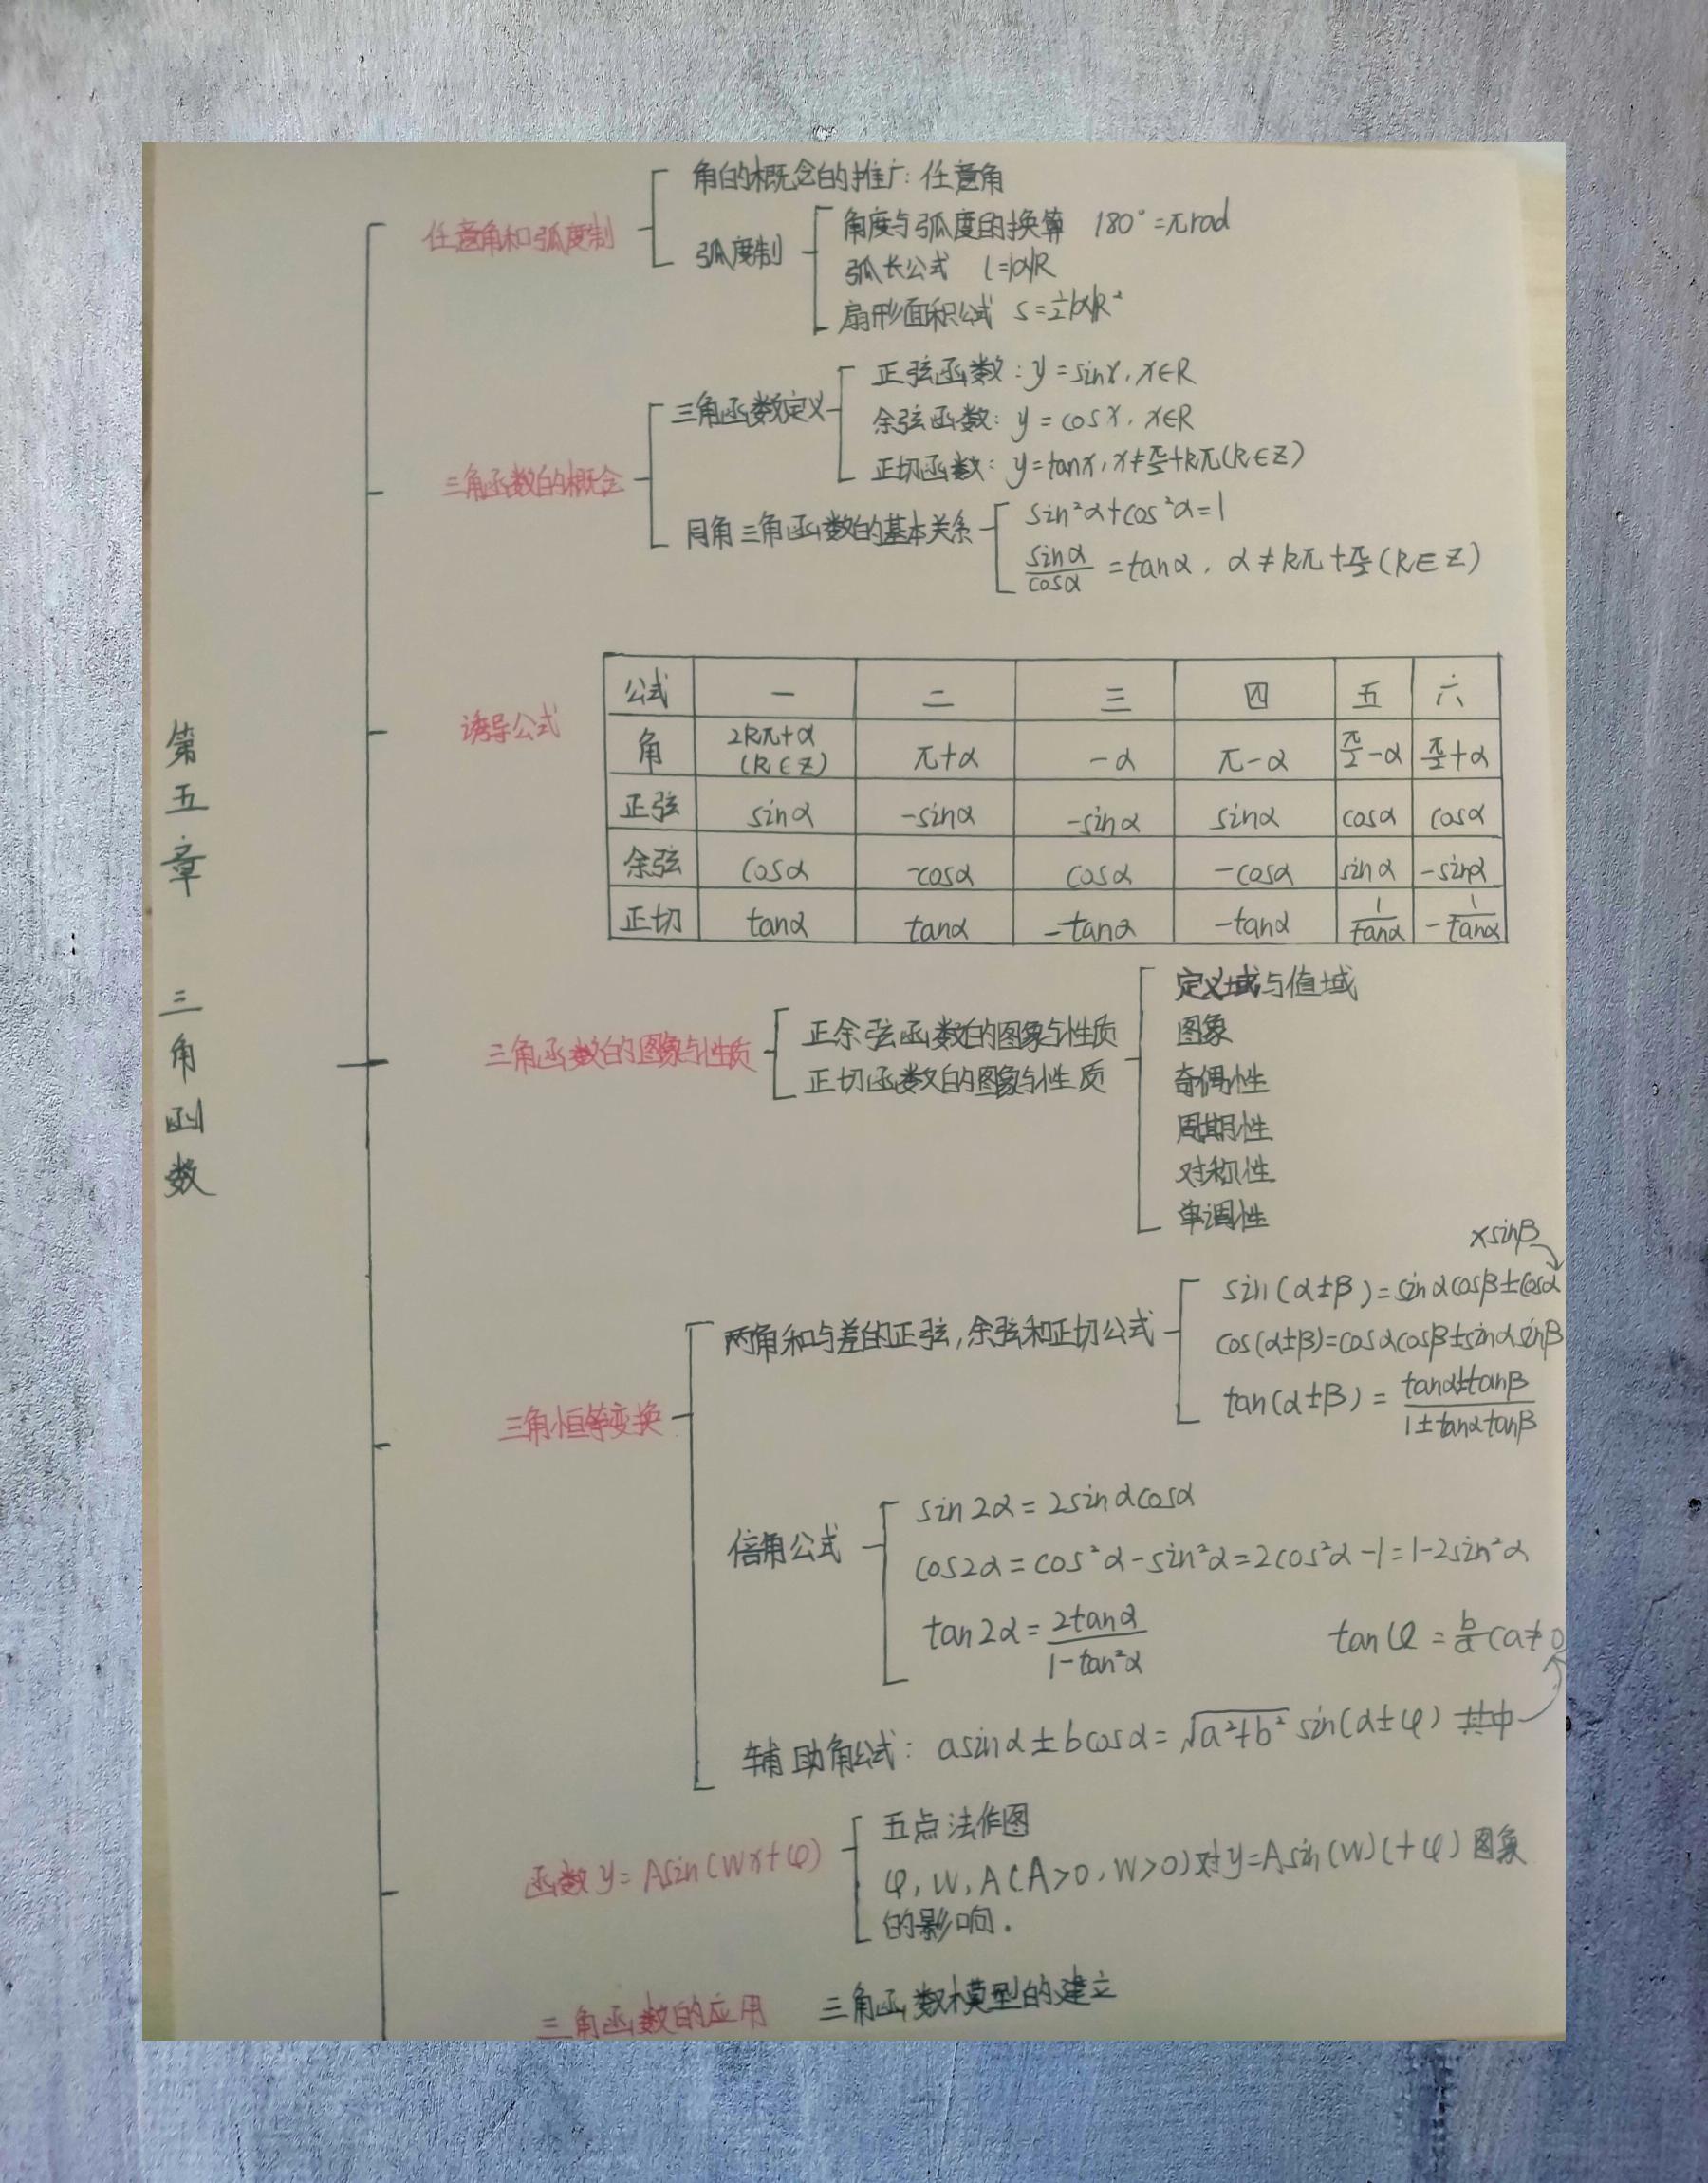 第五章 三角函数
任意角和弧度制
角的概念的推广: 任意角
弧度制
角度与弧度的换算 180°=πrad
弧长公式 l=|α|R
扇形面积公式 S=½|α|R²
三角函数的概念
三角函数定义
正弦函数: y=sinx, x∈R
余弦函数: y=cosx, x∈R
正切函数: y=tanx, x≠π/2+kπ(k∈Z)
同角三角函数的基本关系
sin²α+cos²α=1
sinα/cosα=tanα, α≠kπ+π/2(k∈Z)
诱导公式
公式 一 二 三 四 五 六
角 2kπ+α (k∈Z) π+α -α π-α π/2-α π/2+α
正弦 sinα -sinα -sinα sinα cosα cosα
余弦 cosα -cosα cosα -cosα sinα -sinα
正切 tanα tanα -tanα -tanα 1/tanα -1/tanα
三角函数的图象与性质
正余弦函数的图象与性质
正切函数的图象与性质
定义域与值域
图象
奇偶性
周期性
对称性
单调性
三角恒等变换
两角和与差的正弦,余弦和正切公式
×sinβ
sin(α±β)=sinαcosβ±cosα
cos(α±β)=cosαcosβ±sinαsinβ
tan(α±β)=tanα±tanβ/1±tanαtanβ
倍角公式
sin2α=2sinαcosα
cos2α=cos²α-sin²α=2cos²α-1=1-2sin²α
tan2α=2tanα/1-tan²α
tanφ=b/a(a≠0
辅助角公式: asinα±bcosα=√a²+b² sin(α±φ) 其中
函数y=Asin(Wx+φ)
五点法作图
φ,W,A(A>0,W>0)对y=Asin(Wx+φ)图象
的影响.
三角函数的应用 三角函数模型的建立